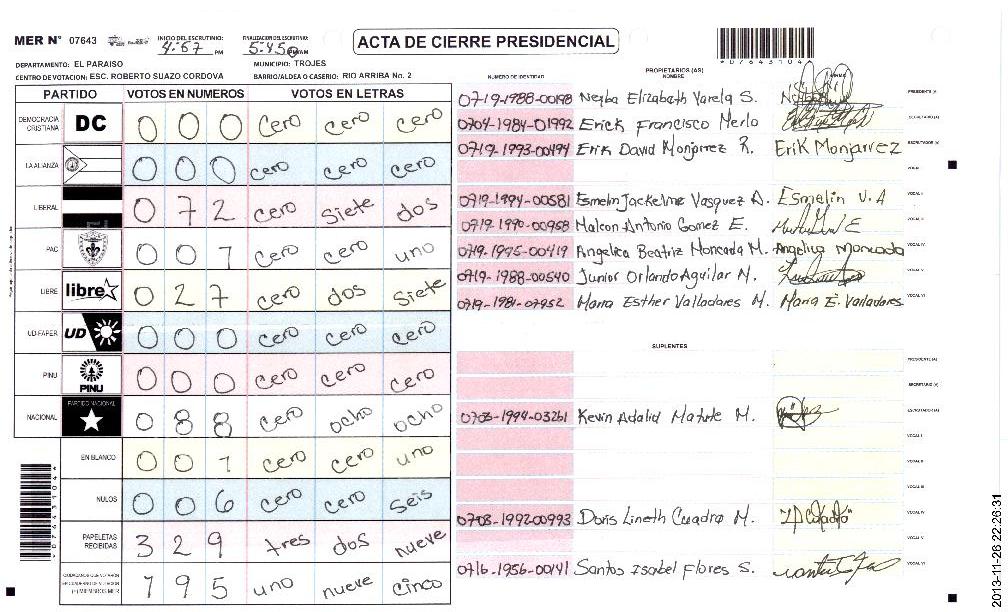 MER Nº 07643 INICIO DEL ESCRUTINIO: 4:57 PM FINALIZACION DEL ESCRUTINIO: 5:45 PM/AM
ACTA DE CIERRE PRESIDENCIAL
*07643104*
DEPARTAMENTO: EL PARAISO MUNICIPIO: TROJES
CENTRO DE VOTACION: ESC. ROBERTO SUAZO CORDOVA BARRIO/ALDEA O CASERIO: RIO ARRIBA No. 2
PARTIDO VOTOS EN NUMEROS VOTOS EN LETRAS
DEMOCRACIA CRISTIANA DC 0 0 0 cero cero cero
LA ALIANZA 0 0 0 cero cero cero
LIBERAL 0 7 2 cero siete dos
PAC 0 0 1 cero cero uno
LIBRE libre 0 2 7 cero dos siete
UD-FAPER UD 0 0 0 cero cero cero
PINU PINU 0 0 0 cero cero cero
NACIONAL PARTIDO NACIONAL 0 8 8 cero ocho ocho
EN BLANCO 0 0 1 cero cero uno
NULOS 0 0 6 cero cero seis
PAPELETAS RECIBIDAS 3 2 9 tres dos nueve
CIUDADANOS QUE VOTARON
EN CUADERNO DE VOTACION
(+) MIEMBROS MER 1 9 5 uno nueve cinco
*07643104*
NÚMERO DE IDENTIDAD PROPIETARIOS (AS) NOMBRE FIRMA
0719-1988-00198 Neyba Elizabeth Varela S. PRESIDENTE (A)
0704-1984-01992 Erick Francisco Merlo SECRETARIO (A)
0719-1993-00494 Erik David Monjarrez R. Erik Monjarrez ESCRUTADOR (A)
VOCAL I
0719-1994-00581 Esmelin Jackeline Vasquez A. Esmelin V.A VOCAL II
0719-1990-00958 Malcon Antonio Gomez E. VOCAL III
0719-1995-00419 Angelica Beatriz Moncada M. Angelica Moncada VOCAL IV
0719-1988-00540 Junior Orlando Aguilar M. VOCAL V
0719-1981-07952 Maria Esther Valladares M. Maria E. Valladares VOCAL VI
SUPLENTES
PRESIDENTE (A)
SECRETARIO (A)
0703-1994-03261 Kevin Adalid M. ESCRUTADOR (A)
VOCAL I
VOCAL II
VOCAL III
0703-1992-00993 Doris Lineth Cuadra M. VOCAL IV
VOCAL V
0716-1956-00141 Santos Isabel Flores S. VOCAL VI
2013-11-26 22:26:31